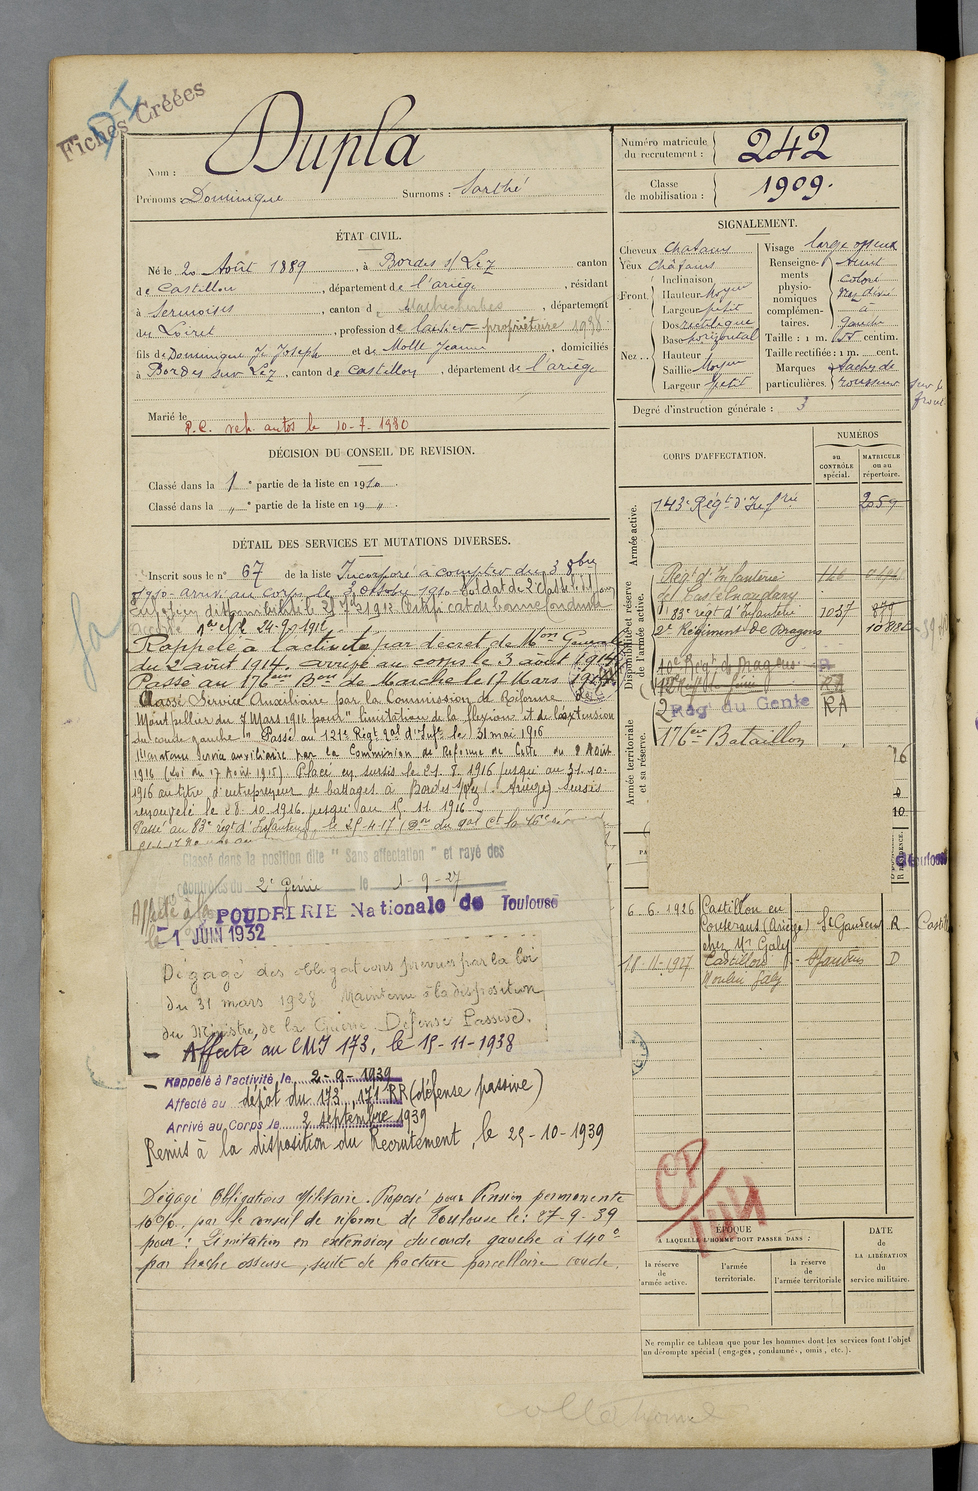 Fiches Créées
Nom : Dupla
Prénoms : Dominique Surnoms :
Numéro matricule du recrutement : 242
Classe de mobilisation : 1909.
ÉTAT CIVIL.
Né le 20 Août 1889, à Bordes s/ Lez canton
de Castillon, département de l'ariège, résidant
à Sermoises, canton d Malhesherbes, département
du Loiret, profession de laitier propriétaire 1938
fils de Dominique J. Joseph et de Molle Jeanne, domiciliés
à Bordes sur Lez, canton de Castillon, département de l'ariège
Marié le
P.C. veh. autos le 10-7-1930
SIGNALEMENT.
Cheveux Chatains
Yeux Châtains
Front. Inclinaison
Hauteur Moyen
Largeur petit
Nez Dos rectiligne
Base horizontal
Hauteur
Saillie Moyen
Largeur petit
Visage large osseux
Renseignements physionomiques complémentaires. teint coloré nez dévié à gauche
Taille : 1 m. centim.
Taille rectifiée : 1 m. cent.
Marques particulières. taches de rousseur sur le front
Degré d'instruction générale : 3
DÉCISION DU CONSEIL DE REVISION.
Classé dans la 1e partie de la liste en 1910.
Classé dans la " e partie de la liste en 19 " .
DÉTAIL DES SERVICES ET MUTATIONS DIVERSES.
Inscrit sous le n° 67 de la liste Incorporé à compter du 3 8bre
1910 - arrivé au corps le 3 octobre 1910 - Soldat de 2e classe
Certificat de bonne conduite
accordé
Rappelé à l'activité par décret de Mon Générale
du 2 août 1914. arrivé au corps le 3 août 1914
Passé au 176eme Bon de Marche le 17 Mars 1915
Classé Service Auxiliaire par la Commission de Réforme de
Montpellier du 7 Mars 1916 pour " limitation de la flexion et de l'extension
du coude gauche " Passé au 121e Régt d'Infie le 31 mai 1916
Maintenu Service auxiliaire par la Commission de Réforme de Cette du 8 Août
1916 (Loi du 17 Août 1915) Placé en sursis le 21. 8. 1916 jusqu'au 31. 10.
1916 au titre d'entrepreneur de battages à Bordes s/Lez (Ariège) Sursis
renouvelé le 28-10-1916 jusqu'au 15-11-1916
Passé au 83e régt d'Infanterie, le 25-4-17
Classé dans la position dite " Sans affectation " et rayé des
contrôles du 2e Génie le 1-9-27
Affecté à la POUDRERIE Nationale de Toulouse
le -1 JUIN 1932
Dégagé des obligations prévues par la loi
du 31 mars 1928. Maintenu à la disposition
du Ministre de la Guerre. Défense Passive.
— Affecté au CMI 173, le 15-11-1938
— Rappelé à l'activité le 2-9-1939
Affecté au dépôt du 173, 171 RR (défense passive)
Arrivé au Corps le 2 septembre 1939
Remis à la disposition du Recrutement, le 25-10-1939
Dégagé Obligations Militaire. Proposé pour Pension permanente
10%, par le conseil de réforme de Toulouse le : 27-9-39
pour : Limitation en extension du coude gauche à 140°
par broche osseuse, suite de fracture parcellaire coude.
CORPS D'AFFECTATION.
NUMÉROS
au CONTRÔLE spécial.
MATRICULE ou au répertoire.
Armée active.
143e Régt d'Infrie 2059
Disponibilité et réserve de l'armée active.
Régt d'Infanterie
de Castelnaudary
83e régt d'Infanterie 1037 879
2e Régiment de Dragons
10e Régt de Dragons
Armée territoriale et sa réserve.
Rég du Génie RA
176em Bataillon
6. 6. 1926 Castillon en Couserans (Ariège) chez Mr Galy St Gaudens R
18-11-1927 Castillon Moulin Galy St Gaudens D
CP/1941
ÉPOQUE
A LAQUELLE L'HOMME DOIT PASSER DANS :
la réserve de l'armée active.
l'armée territoriale.
la réserve de l'armée territoriale
DATE de LA LIBÉRATION du service militaire.
Ne remplir ce tableau que pour les hommes dont les services font l'objet
d'un décompte spécial (engagés, condamnés, omis, etc.).